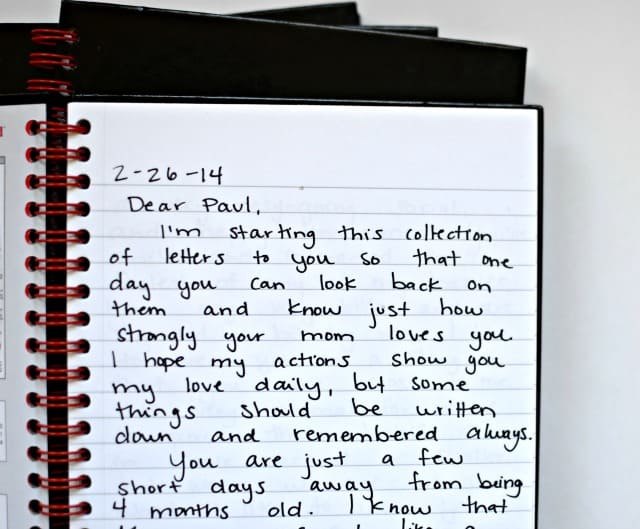 2-26-14
Dear Paul,
I'm starting this collection
of letters to you so that one
day you can look back on
them and know just how
strongly your mom loves you.
I hope my actions show you
my love daily, but some
things should be written
down and remembered always.
You are just a few
short days away from being
4 months old. I know that